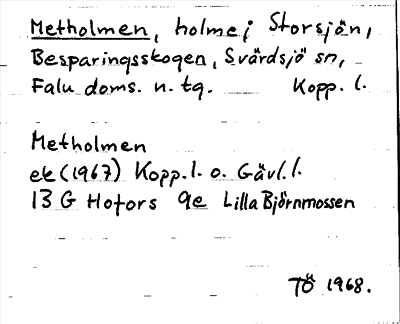 Metholmen, holme i Storsjön,
Besparingsskogen, Svärdsjö sn,
Falu doms. n. tg. Kopp. l.
Metholmen
ek (1967) Kopp. l. o. Gävl. l.
13 G Hofors 9e Lilla Björnmossen
TÖ 1968.